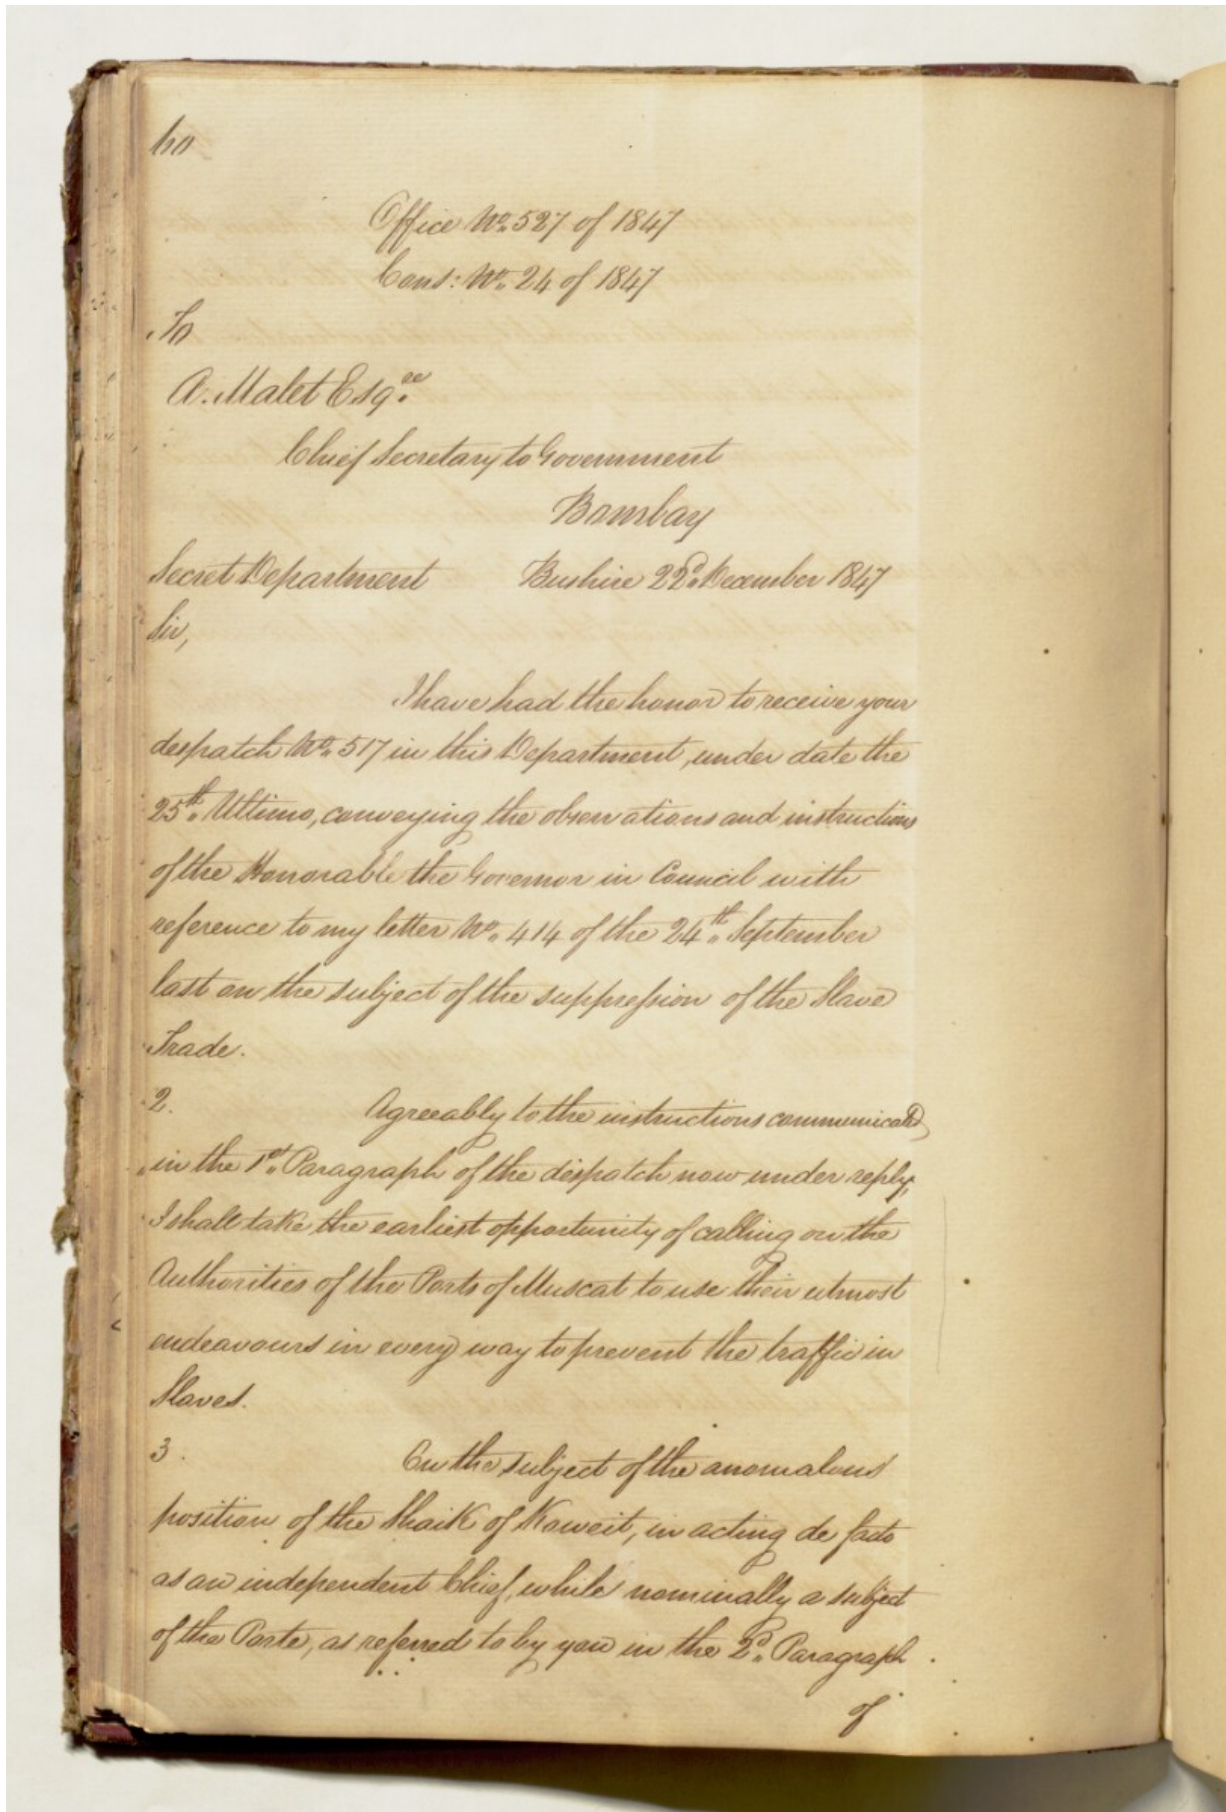 60
Office No. 527 of 1847
Cons: No. 24 of 1847
To
A. Malet Esqre.
Chief Secretary to Government
Bombay
Secret Department Bushire 22d. December 1847
Sir,
I have had the honor to receive your
despatch No. 517 in this Department, under date the
25th. Ultimo, conveying the observations and instructions
of the Honorable the Governor in Council with
reference to my letter No. 414 of the 24th. September
last on the subject of the suppression of the Slave
Trade.
2. Agreeably to the instructions communicated
in the 1st. Paragraph of the despatch now under reply,
I shall take the earliest opportunity of calling on the
Authorities of the Ports of Muscat to use their utmost
endeavours in every way to prevent the traffic in
Slaves.
3. On the subject of the anomalous
position of the Shaik of Koweit, in acting de facto
as an independent Chief, while nominally a subject
of the Porte, as referred to by you in the 2d. Paragraph
of